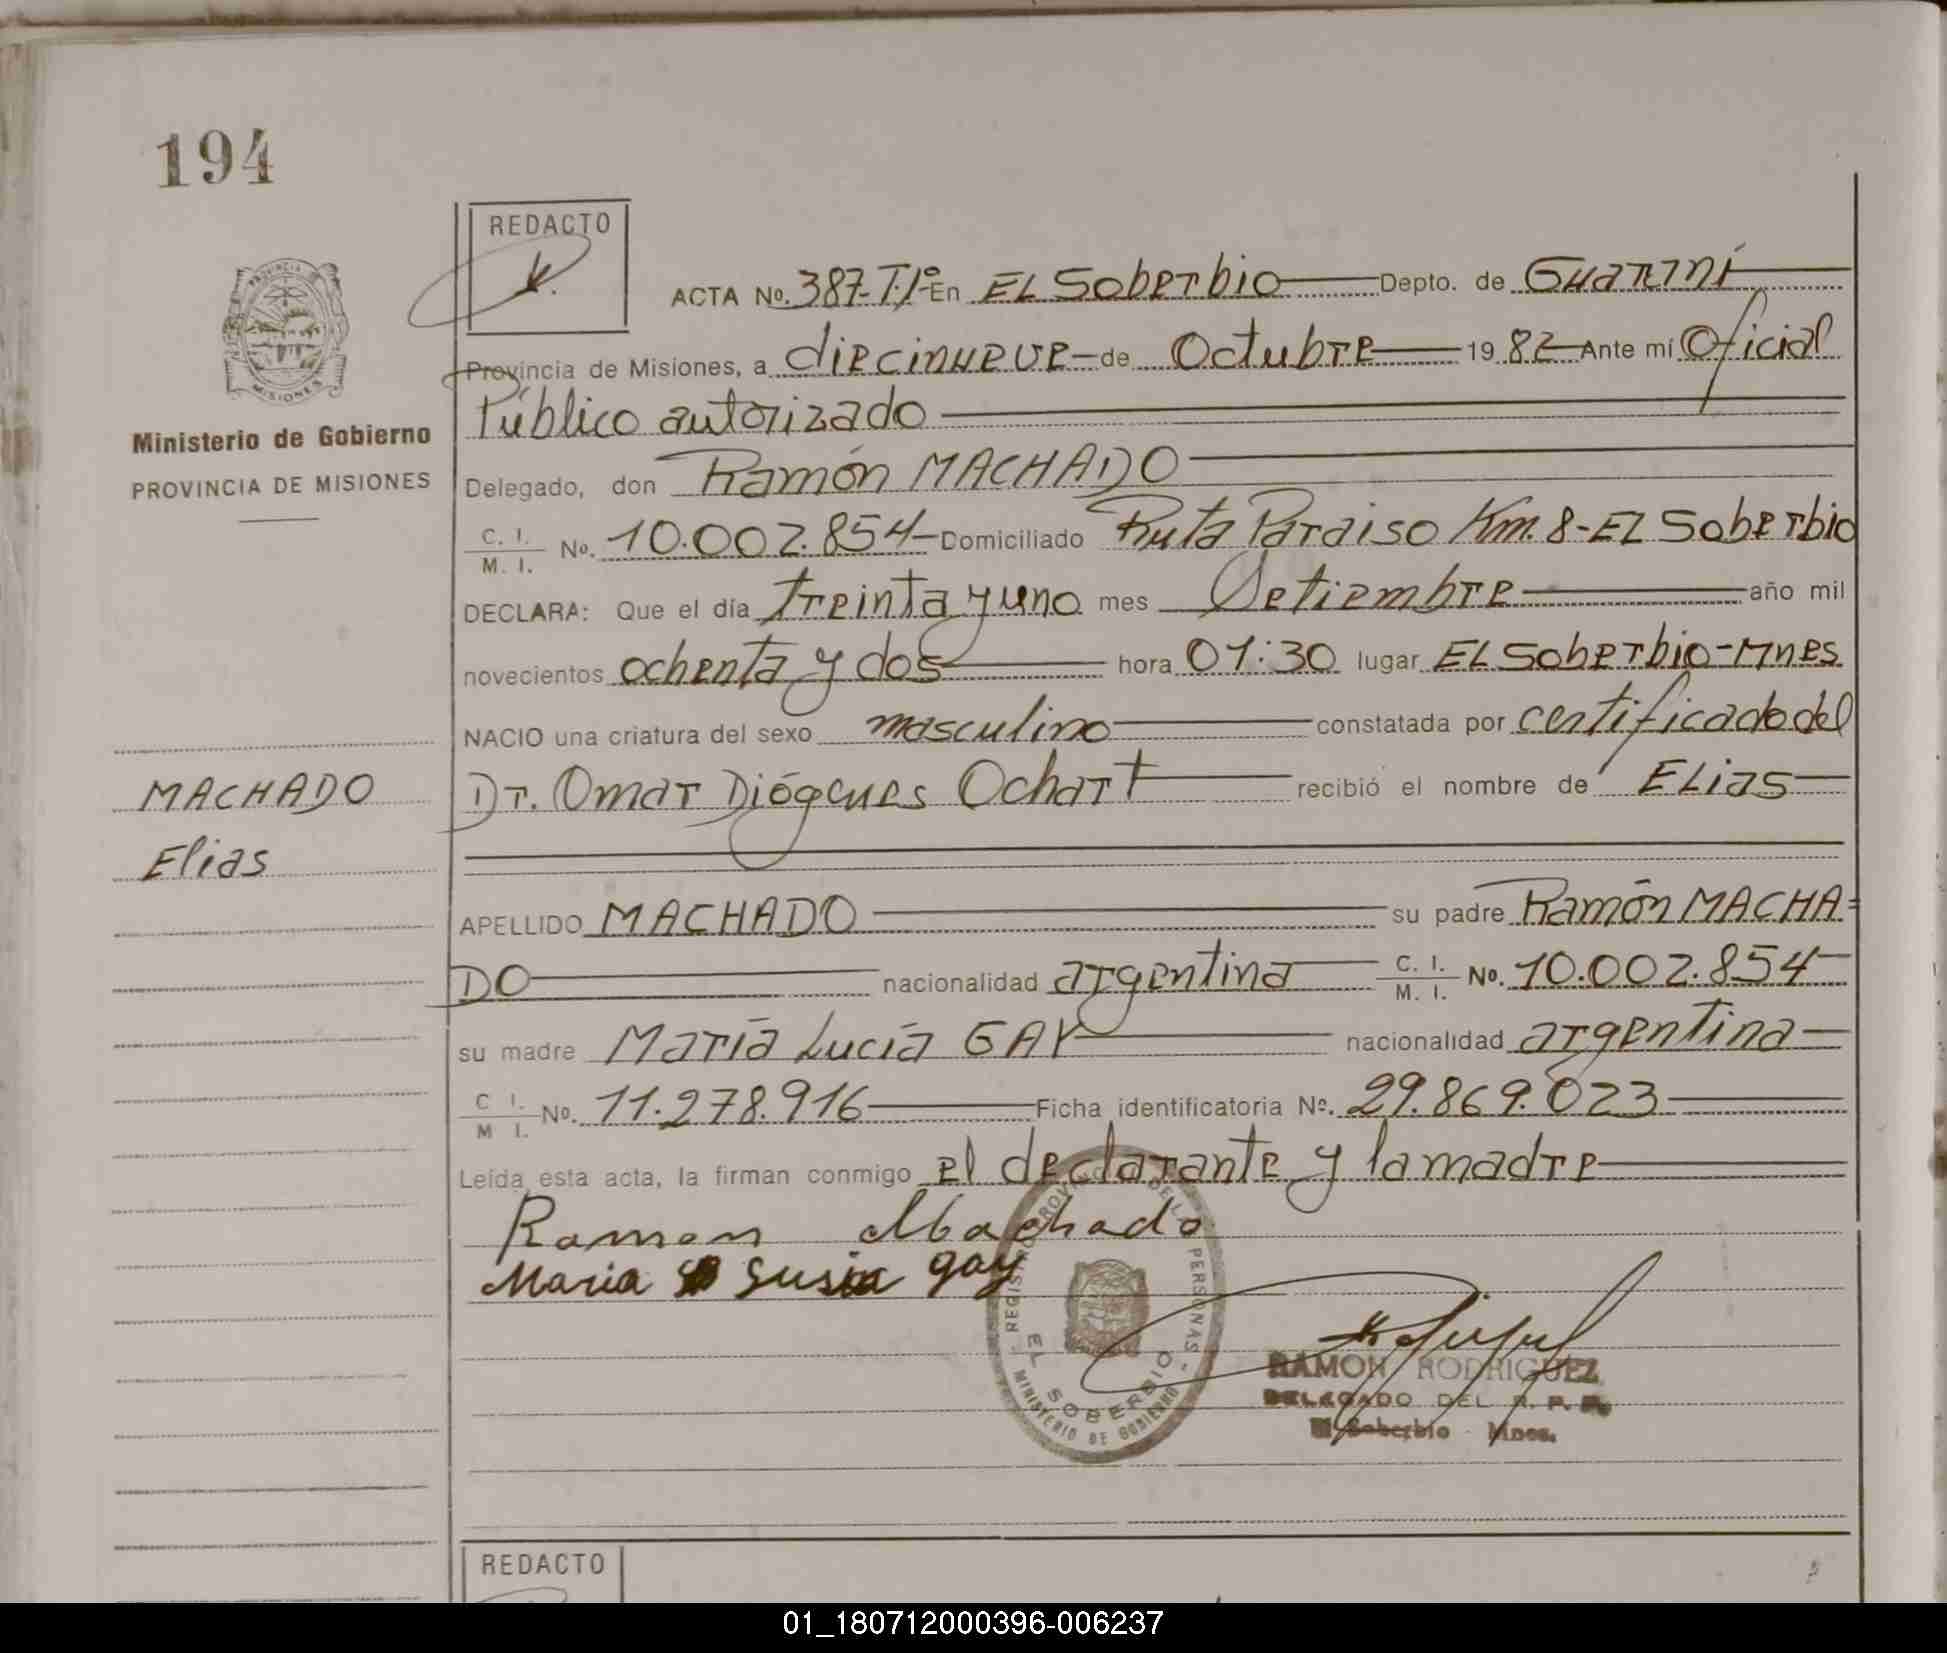 194
REDACTO
ACTA No. 387-T.1º En EL Soberbio Depto. de Guaraní
Provincia de Misiones, a diecinueve de Octubre 1982 Ante mí Oficial
Público autorizado
Delegado, don Ramón MACHADO
C. I. M. I. No. 10.002.854 Domiciliado Ruta Paraiso Km. 8-EL Soberbio
DECLARA: Que el día treinta y uno mes Setiembre año mil
novecientos ochenta y dos hora 01:30 lugar EL Soberbio-Mnes
NACIO una criatura del sexo masculino constatada por certificado del
Dr. Omar Diógenes Ochart recibió el nombre de ELias
APELLIDO MACHADO su padre Ramón MACHA=
DO nacionalidad argentina C. I. M. I. No. 10.002.854
su madre María Lucía GAY nacionalidad argentina
C I. M I. No. 11.278.916 Ficha identificatoria Nº. 29.869.023
Leída esta acta, la firman conmigo el declarante y la madre
Ramon Machado
Maria Susia gay
REGISTRO PROVINCIAL DE LAS PERSONAS
EL SOBERBIO
MINISTERIO DE GOBIERNO
RAMON RODRIGUEZ
DELEGADO DEL R. P. P.
El Soberbio - Mnes.
PROVINCIA DE MISIONES
Ministerio de Gobierno
PROVINCIA DE MISIONES
MACHADO
Elias
REDACTO
01_180712000396-006237